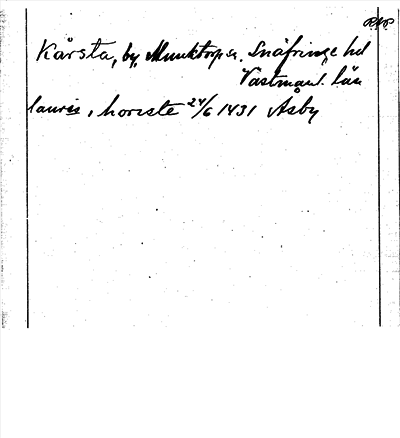 RAP
Kårsta, by, Munktorps sn. Snäfringe hd
Västmanl. län
lauris, horista 24/6 1431 Åsby